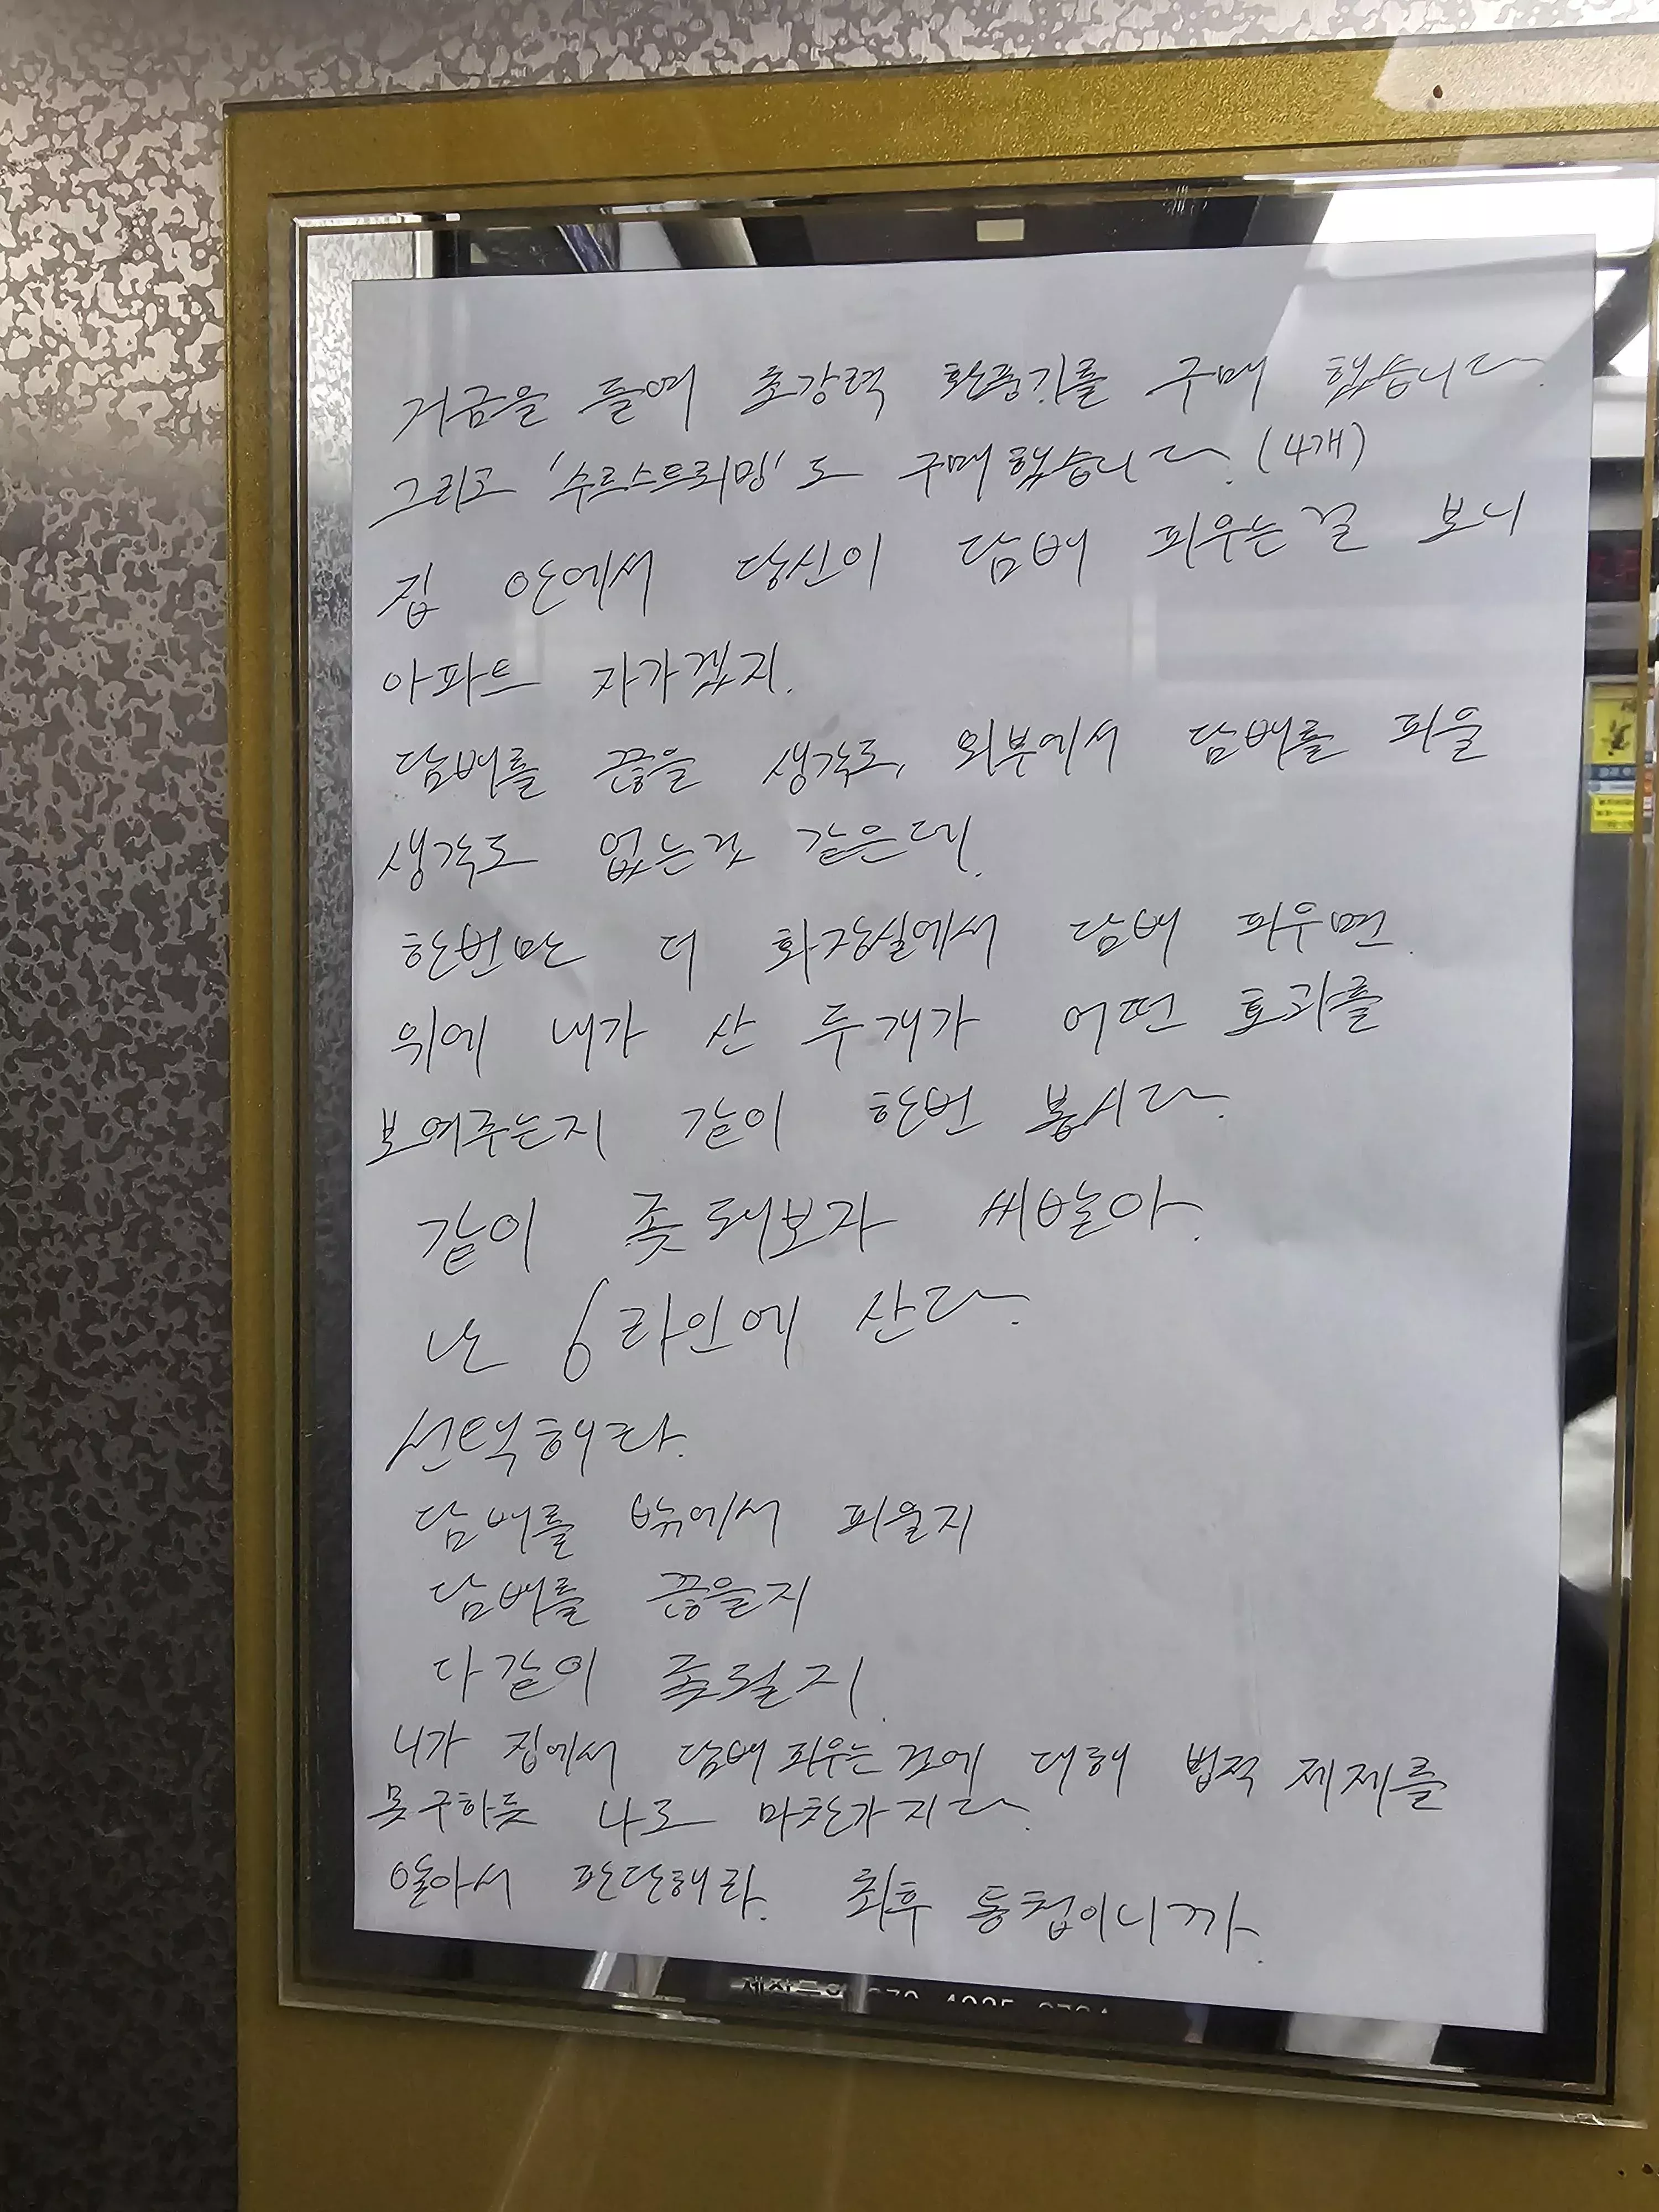 거금을 들여 초강력 환풍기를 구매 했습니다.
그리고 '수르스트뢰밍'도 구매했습니다. (4개)
집 안에서 당신이 담배 피우는걸 보니
아파트 자가겠지.
담배를 끊을 생각도, 외부에서 담배를 피울
생각도 없는것 같은데.
한번만 더 화장실에서 담배 피우면.
위에 내가 산 두개가 어떤 효과를
보여주는지 같이 한번 봅시다.
같이 좆돼보자 씨발아.
난 6라인에 산다.
선택해라.
담배를 밖에서 피울지
담배를 끊을지
다같이 좆될지.
니가 집에서 담배 피우는 것에 대해 법적 제제를
못구하듯 나도 마찬가지다.
알아서 판단해라. 최후 통첩이니까.